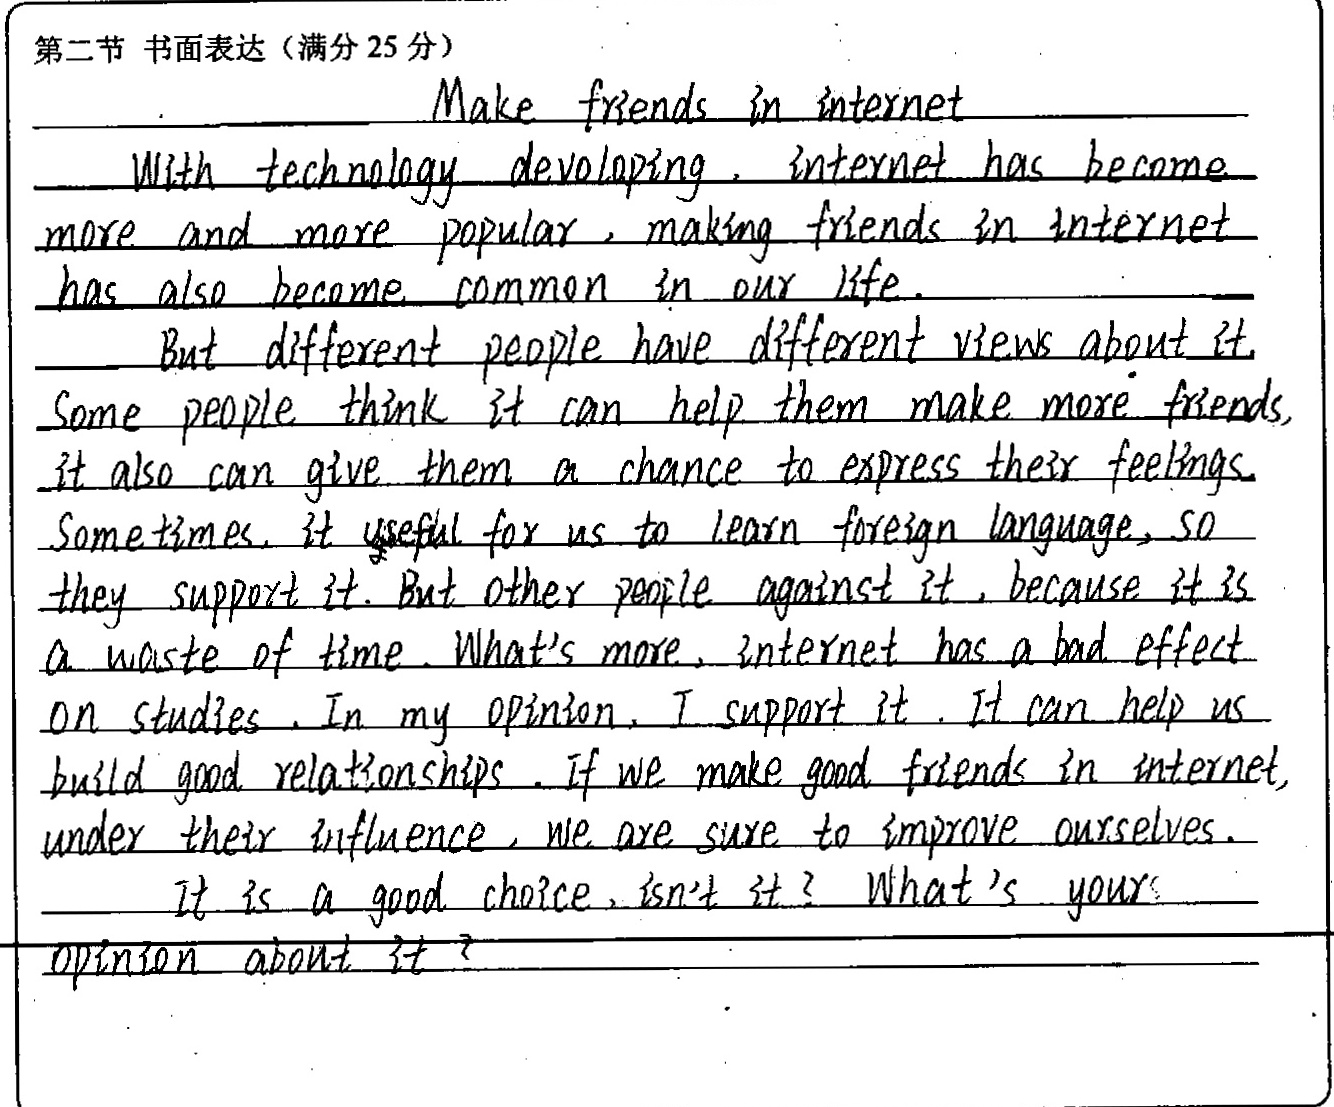 第二节 书面表达（满分 25 分）
Make friends in internet
With technology devoloping, internet has become
more and more popular, making friends in internet
has also become common in our life.
But different people have different views about it.
Some people think it can help them make more friends,
it also can give them a chance to express their feelings.
Sometimes, it useful for us to learn foreign language, so
they support it. But other people against it, because it is
a waste of time. What's more, internet has a bad effect
on studies. In my opinion, I support it. It can help us
build good relationships. If we make good friends in internet,
under their influence, we are sure to improve ourselves.
It is a good choice, isn't it? What's your
opinion about it?